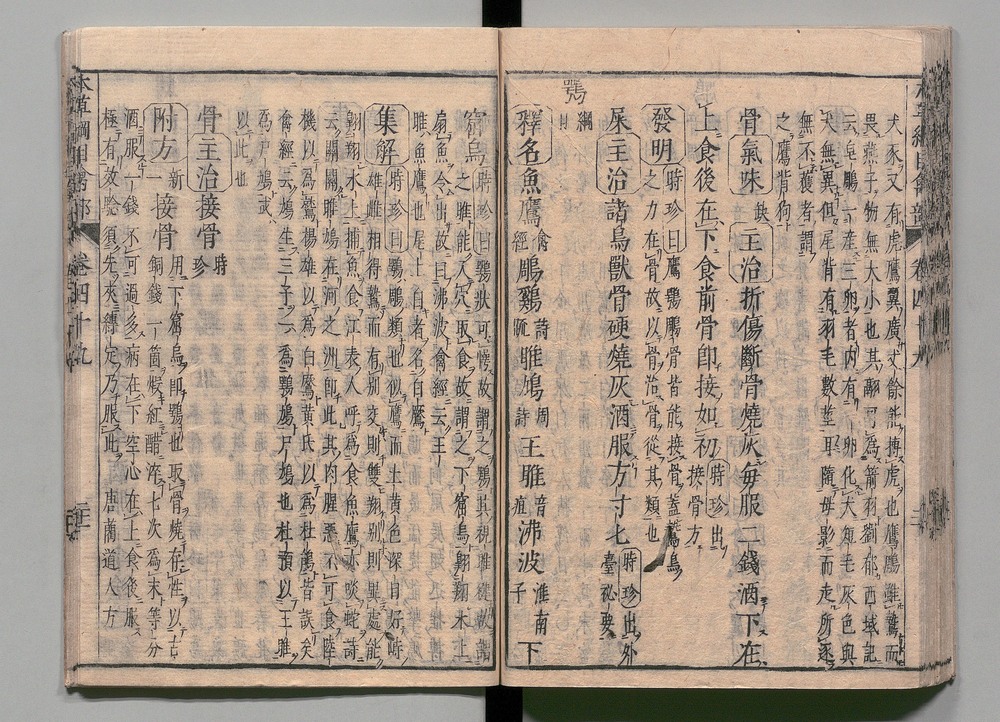 犬豕又有虎鷹翼廣丈餘能搏虎也鷹鵰雖鷙而
畏燕子物無大小也其翮可爲箭羽劉郁西域記
云皂鵰一產三卵者內有一卵化犬短毛灰色與
犬無異但尾背有羽毛數莖耳隨母影而走所逐
無不獲者謂
之鷹背狗
骨氣味缺主治折傷斷骨燒灰每服二錢酒下在
上食後在下食前骨卽接如初時珍出
接骨方
發明時珍曰鷹鶚鵰骨皆能接骨蓋鷙鳥
之力在骨故以骨治骨從其類也
屎主治諸鳥獸骨硬燒灰酒服方寸匕時珍出外
臺祕要
鶚綱目
釋名魚鷹禽經鵰鷄詩疏雎鳩周詩王雎音疽沸波淮南子下
窟烏時珍曰鶚狀可愕故謂之鶚其視雎健故謂
之雎能入穴取食故謂之下窟烏翱翔水上
扇魚令出故曰沸波禽經云王
雎魚鷹也尾上白者名白鷢
集解時珍曰鶚鵰類也似鷹而土黃色深目好峙
雄雌相得鷙而有別交則雙翔別則異處能
翱翔水上捕魚食江表人呼爲食魚鷹亦啖蛇詩
云關關雎鳩在河之洲卽此其肉腥惡不可食陸
機以爲鷲楊雄以爲白鷢黃氏以爲杜鵑皆誤矣
禽經云鳩生三子一爲鶚鳩尸鳩也杜預以王雎
爲尸鳩或
以此也
骨主治接骨時珍
附方新一接骨用下窟烏卽鶚也取骨燒存性以古
銅錢一箇煅紅醋淬七次爲末等分
酒服一錢不可過多病在下空心在上食後服
極有效驗須先夾縛定乃服此唐藺道人方
本草綱目禽部
卷四十九